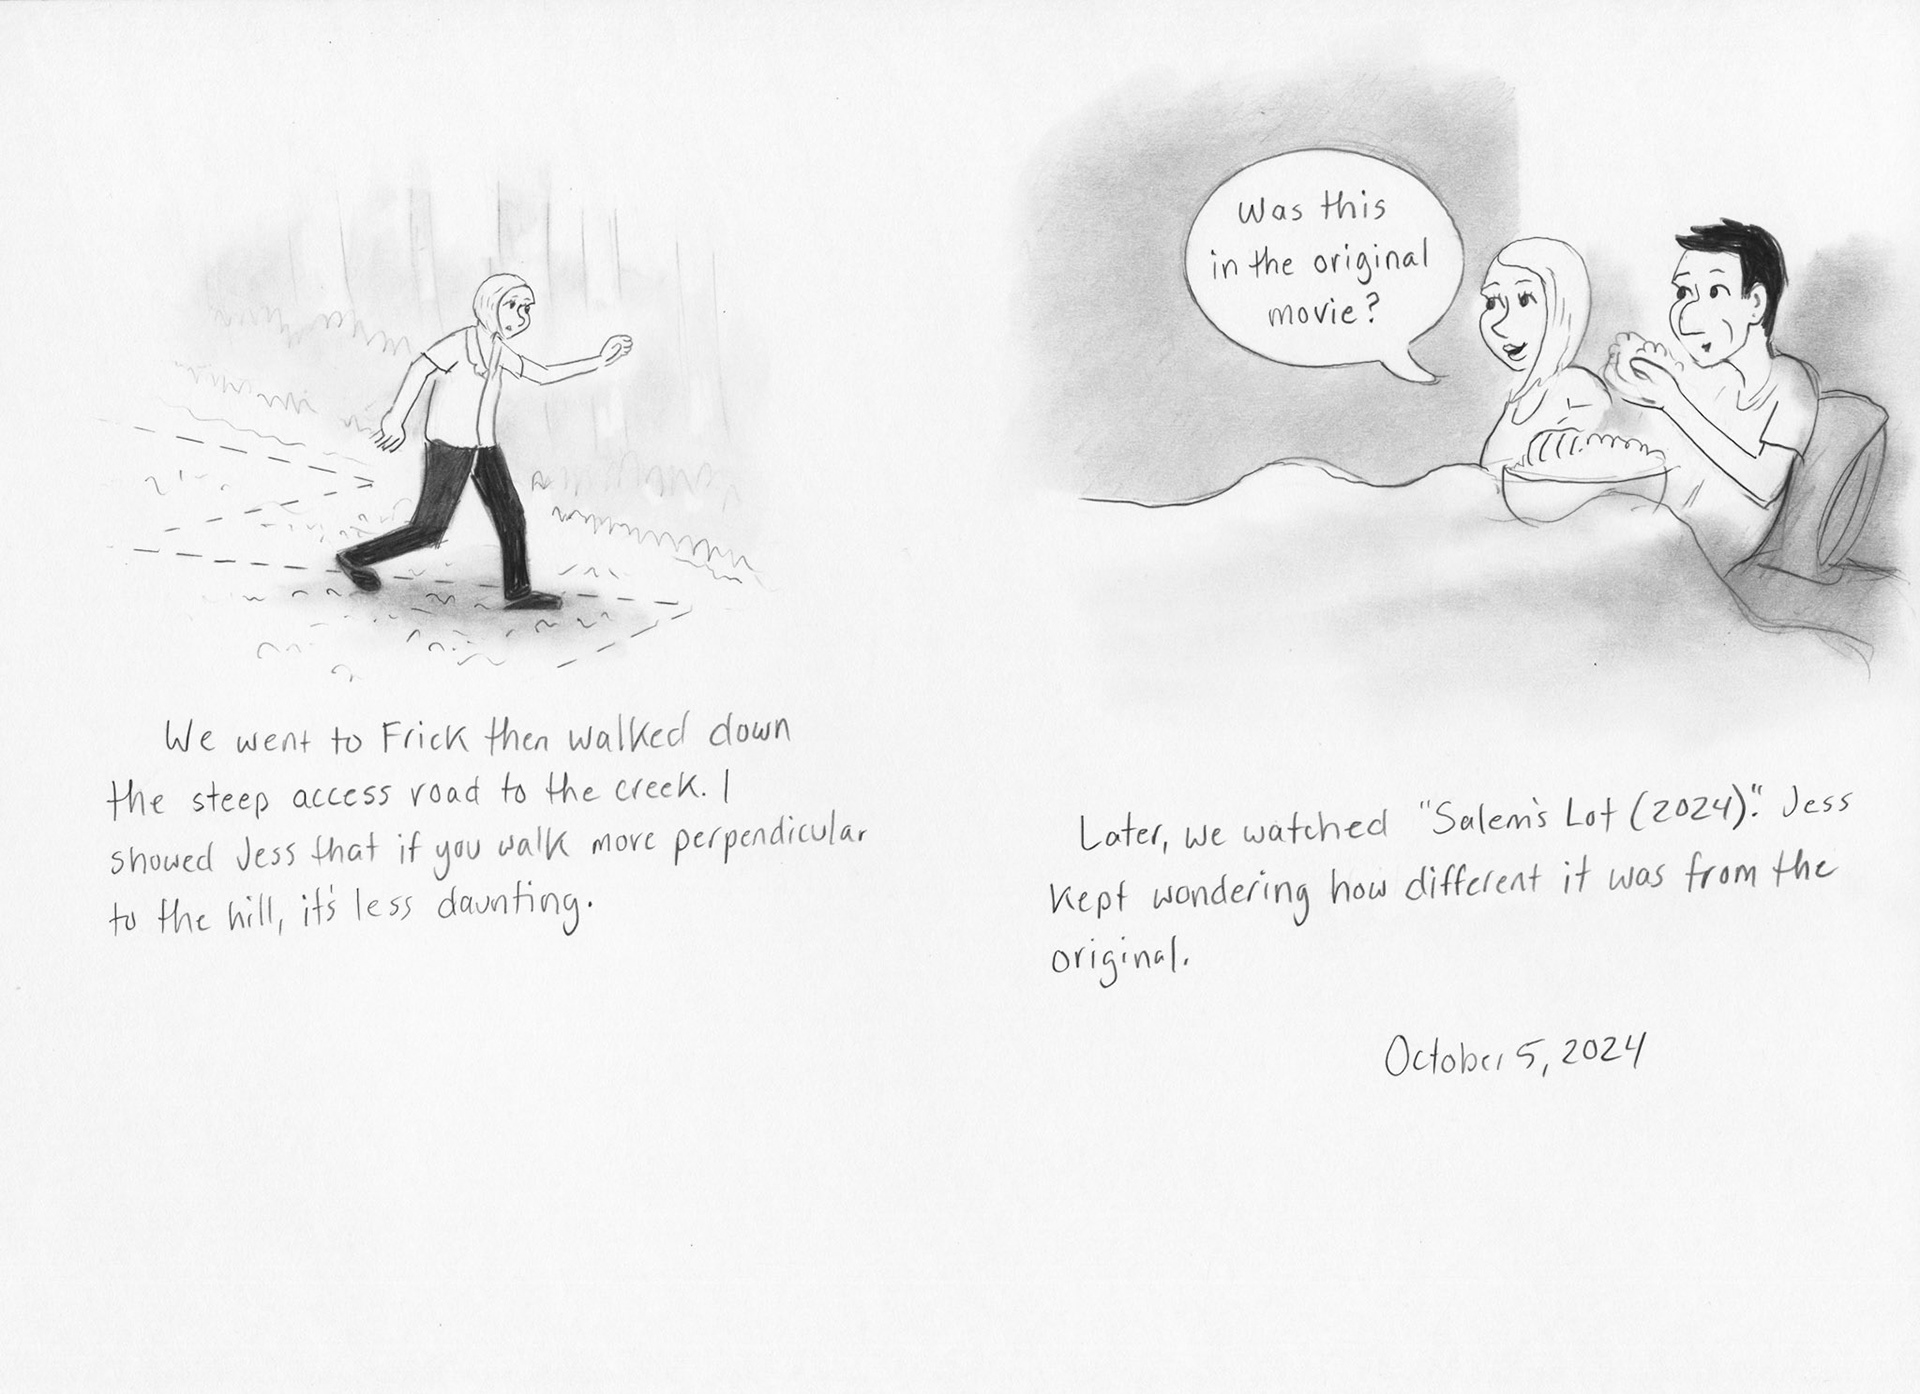 We went to Frick then walked down
the steep access road to the creek. I
showed Jess that if you walk more perpendicular
to the hill, it's less daunting.
Was this
in the original
movie?
Later, we watched "Salem's Lot (2024)." Jess
kept wondering how different it was from the
original.
October 5, 2024